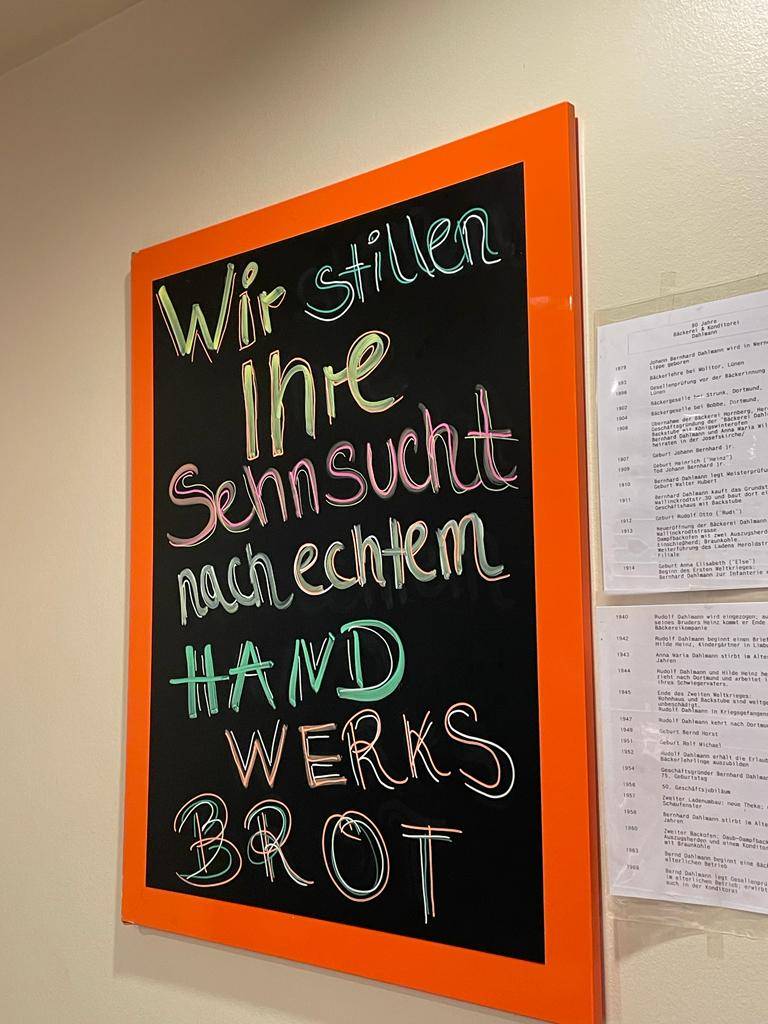 Wir stillen
Ihre
Sehnsucht
nach echtem
HAND
WERKS
BROT
80 Jahre
Bäckerei & Konditorei
Dahlmann
1879 Johann Bernhard Dahlmann wird in Werne
Lippe geboren
Bäckerlehre bei Wolitor, Lünen
Gesellenprüfung vor der Bäckerinnung
Lünen
1902 Bäckergeselle bei Strunk, Dortmund,
1904 Bäckergeselle bei Bobbe, Dortmund,
1906 Übernahme der Bäckerei Hornberg,
Geschäftsgründung der "Bäckerei
Backstube mit Königswinterofen
Bernhard Dahlmann und Anna Maria
heiraten in der Josefskirche/
1907 Geburt Johann Bernhard jr.
1909 Geburt Heinrich ("Heinz")
Tod Johann Bernhard jr.
1910 Bernhard Dahlmann legt
Geburt Walter Hubert
1911 Bernhard Dahlmann kauft das
Mallinckrodtstr.30 und baut dort
Geschäftshaus mit Backstube
1912 Geburt Rudolf Otto ("Rudi")
1913 Neueröffnung der Bäckerei Dahlmann
Mallinckrodtstrasse
Dampfbackofen mit zwei
Einschießherd; Braunkohle
Weiterführung des Ladens
Filiale
1914 Geburt Anna Elisabeth ("Else")
Beginn des Ersten Weltkrieges:
Bernhard Dahlmann zur Infanterie
1940 Rudolf Dahlmann wird eingezogen;
seines Bruders Heinz kommt er Ende
Bäckereikompanie
1942 Rudolf Dahlmann beginnt einen
Hilde Heinz, Kindergärtner in
1943 Anna Maria Dahlmann stirbt im
Jahren
1944 Rudolf Dahlmann und Hilde Heinz
zieht nach Dortmund und arbeitet
ihres Schwiegervaters.
1945 Ende des Zweiten Weltkrieges:
Wohnhaus und Backstube sind
unbeschädigt.
Rudolf Dahlmann in
1947 Rudolf Dahlmann kehrt nach
1949 Geburt Bernd Horst
1951 Geburt Rolf Michael
1952 Rudolf Dahlmann erhält die
Bäckerlehrlinge auszubilden
1954 Geschäftsgründer Bernhard
75. Geburtstag
1956 50. Geschäftsjubiläum
1957 Zweiter Ladenumbau: neue Theke;
Schaufenster
1958 Bernhard Dahlmann stirbt im
Jahren
1960 Zweiter Backofen:
Auszugsherden und einem
mit Braunkohle
1963 Bernd Dahlmann beginnt eine
elterlichen Betrieb
Bernd Dahlmann legt
im elterlichen Betrieb;
auch in der Konditorei